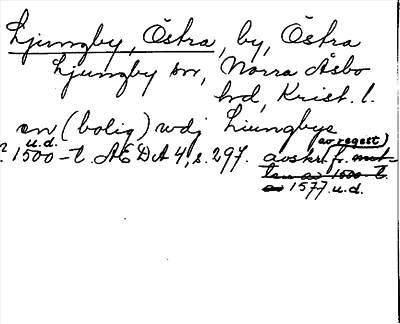 Ljungby, Östra, by, Östra
Ljungby sn, Norra Åsbo
hd, Krist. l.
en (bolig) wdj Liungbye
? 1500-t. u.d. ÆDA 4, s. 297. avskr. (av regest) fr. mit-
ten av 1600-t.
av 1577 u.d.